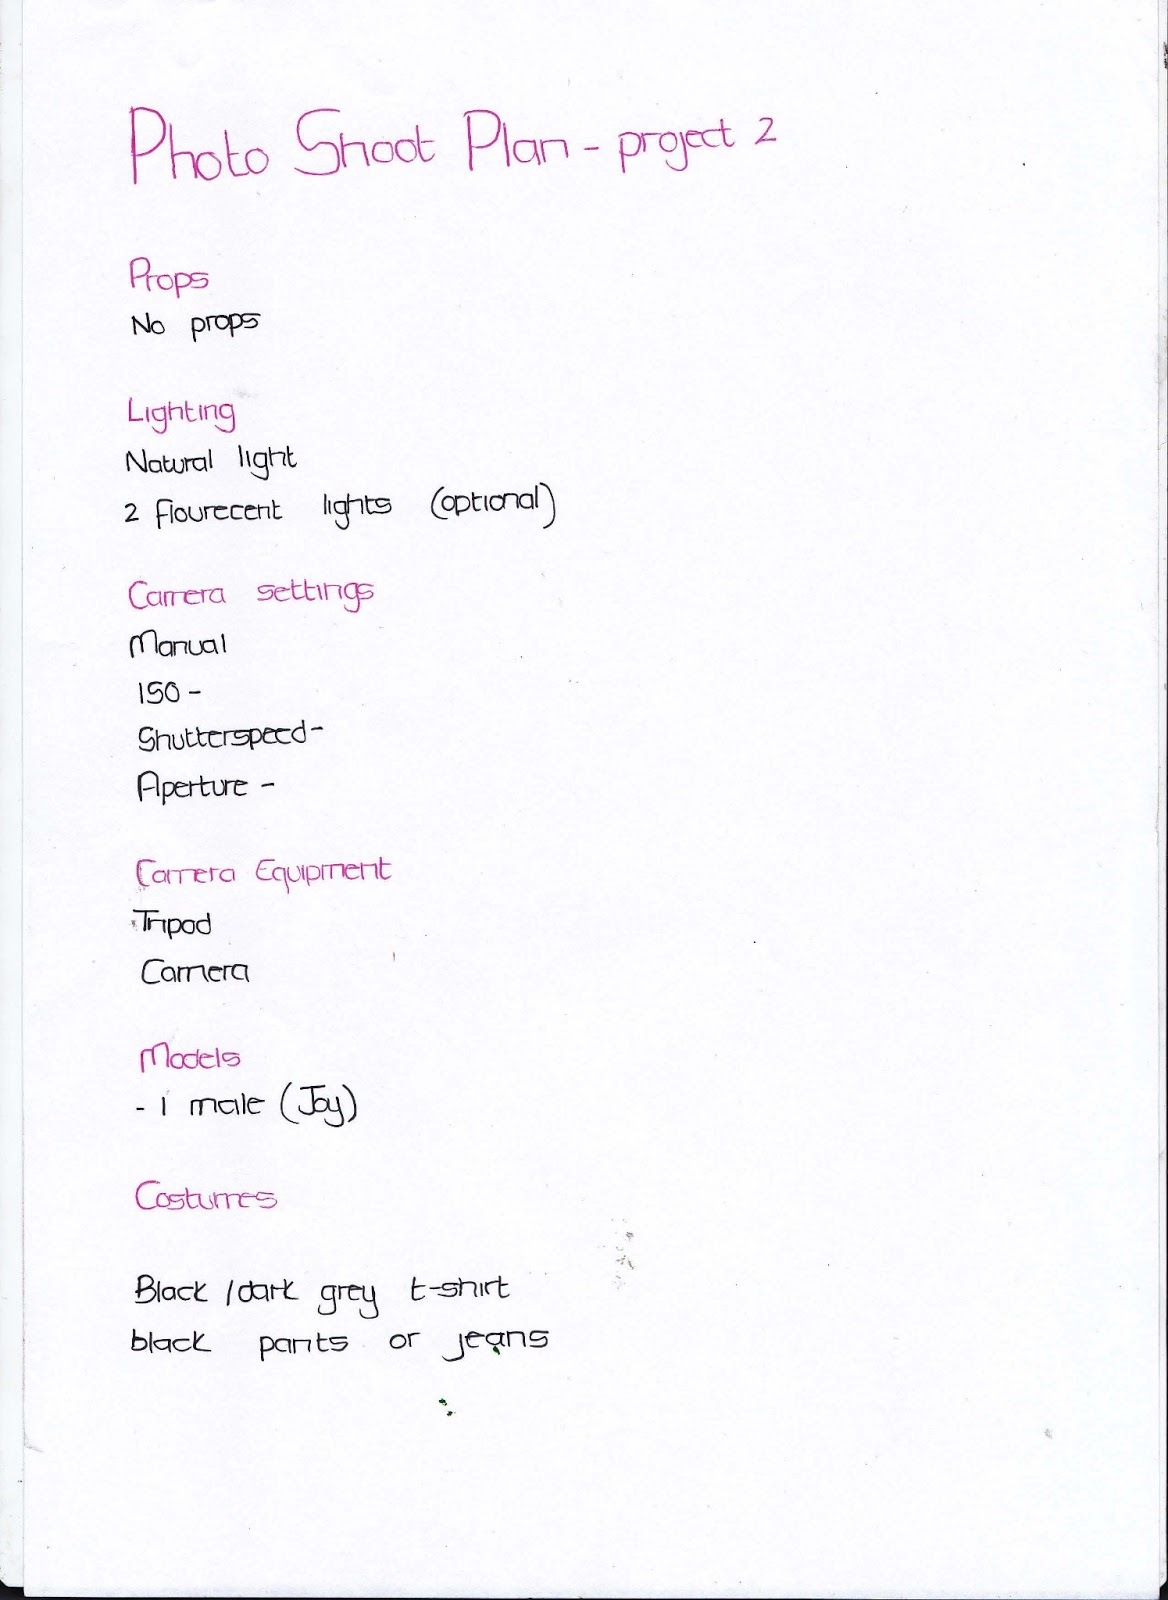 Photo Shoot Plan - project 2
Props
No props
Lighting
Natural light
2 flourecent lights (optional)
Camera settings
Manual
ISO -
Shutterspeed-
Aperture -
Camera Equipment
Tripod
Camera
Models
- 1 male (Joy)
Costumes
Black /dark grey t-shirt
black pants or jeans